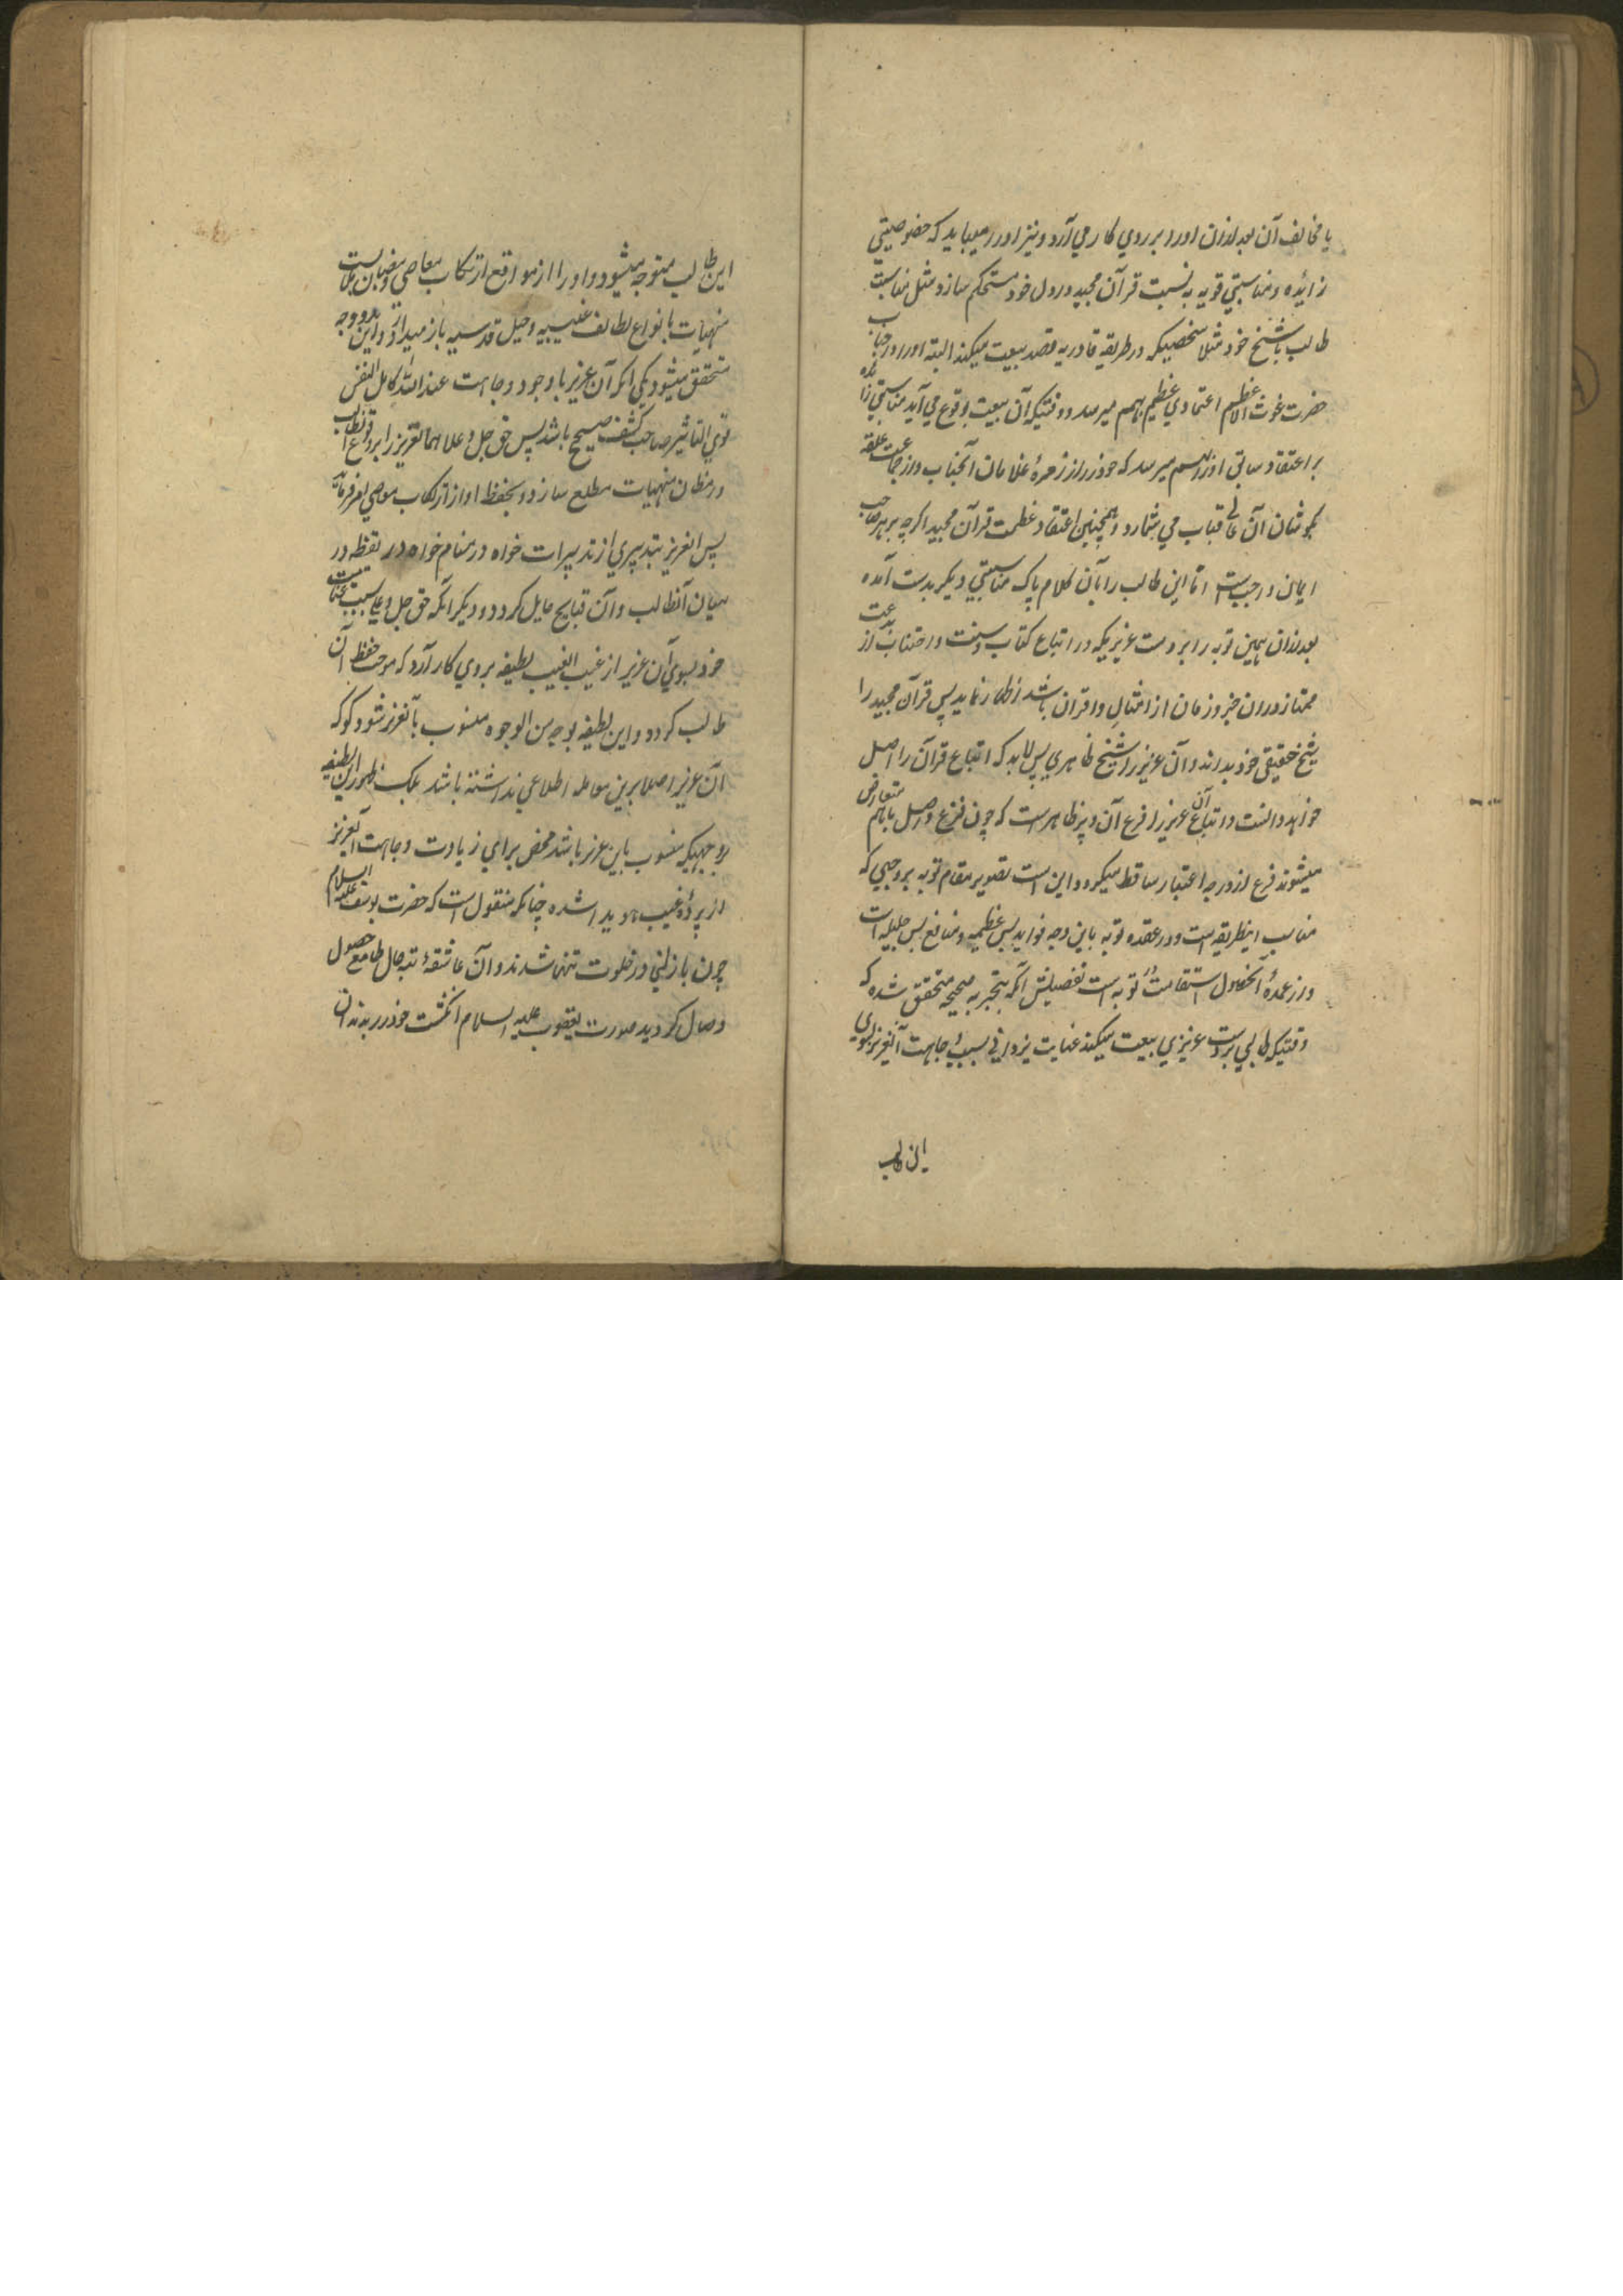 یا مخالف آن بعد ازان اورا بر روی کار می آرد و نیز اورا میباید که خصوصیتی
زایده و مناسبتی قویه به نسبت قرآن مجید در دل خود مستحکم سازد مثل مناسبت
طالب با شیخ خود مثلا شخصیکه در طریقه قادریه قصد بیعت میکند البته اورا در جناب
حضرت غوث الاعظم اعتقادی عظیم بهم میرسد و وقتیکه آن بیعت بوقوع می آید مناسبتی زائده
بر اعتقاد سابق اورا بهم میرسد که خود را از زمره غلامان آنجناب و از جماعت حلقه
بگوشان آن عالی قباب می شمارد و همچنین اعتقاد عظمت قرآن مجید اگرچه بر هر صاحب
ایمان واجبست اما این طالب را بآن کلام پاک مناسبتی دیگر بدست آمده
بعد ازان همین توبه را بر دست عزیزیکه در اتباع کتاب و سنت و اجتناب از بدعت
ممتاز دوران خیر و زمان از امثال و اقران باشد اظهار نماید پس قرآن مجید را
شیخ حقیقی خود بداند و آن عزیز را شیخ ظاهری پس لابد که اتباع قرآن را اصل
خواهد دانست و اتباع آن عزیز را فرع آن و پر ظاهر است که چون فرع و اصل باهم متعارض
میشوند فرع از درجه اعتبار ساقط میگردد و این است تصویر مقام توبه بر وجهی که
مناسب اینطریقه است و در عقده توبه باین وجه فواید بس عظیمه و منافع بس جلیله است
و از عمده آن حصول استقامت توبه است تفصیلش آنکه بتجربه صحیحه متحقق شده که
وقتیکه طالبی بر دست عزیزی بیعت میکند عنایت یزدانی بسبب وجاهت آنعزیز بسوی
این طالب
این طالب متوجه میشود و اورا از مواقع ارتکاب معاصی و مظان ملابست
منهیات بانواع لطائف غیبیه و حیل قدسیه باز میدارد و این بدو وجه
متحقق میشود یکی آنکه آن عزیز با وجود وجاهت عند الله کامل النفس
قوی التاثیر صاحب کشف صحیح باشد پس حق جل و علا همانعزیز را بر وقوع آنطالب
در مظان منهیات مطلع سازد و بحفظ او از ارتکاب معاصی امر فرماید
پس آنعزیز بتدبیری از تدبیرات خواه در منام خواه در یقظه در
میان آنطالب و آن قبایح حایل گردد و دیگر آنکه حق جل و علی بسبب عنایت
خود بسوی آن عزیز از غیب الغیب لطیفه بروی کار آرد که موجب حفظ آن
طالب گردد و این لطیفه بوجه من الوجوه منسوب بآنعزیز شود گو که
آن عزیز اصلا برین معامله اطلاعی نداشته باشد بلکه ظهور این لطیفه
بوجهیکه منسوب باین عزیز باشد محض برای زیادت وجاهت آنعزیز
از پرده غیب هویدا شده چنانکه منقول است که حضرت یوسف علیه السلام
چون با زلیخا در خلوت تنها شدند و آن عاشقه تبه حال طامع حصول
وصال گردید صورت یعقوب علیه السلام انگشت خود را بدندان